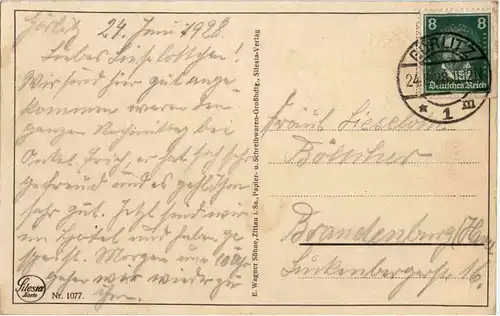 Görlitz 24. Juni 1928.
Liebes Lieselottchen!
Wir sind hier gut ange-
kommen waren den
ganzen Nachmittag bei
Onkel Erich, er hat sich sehr
gefreut und es
sehr gut. Jetzt sind wir
im Hotel und haben ge
speist. Morgen um 10 Uhr
gehen wir wieder zu
ihm.
Silesia
Karte
Nr. 1077.
E. Wagner Söhne, Zittau i. Sa., Papier- u. Schreibwaren-Großhdlg., Silesia-Verlag
8 8
Deutsches Reich
GÖRLITZ
24.
* 1 m
Fräul. Lieselotte
Böttcher
Brandenburg (Havel)
Luckenbergerstr. 16.